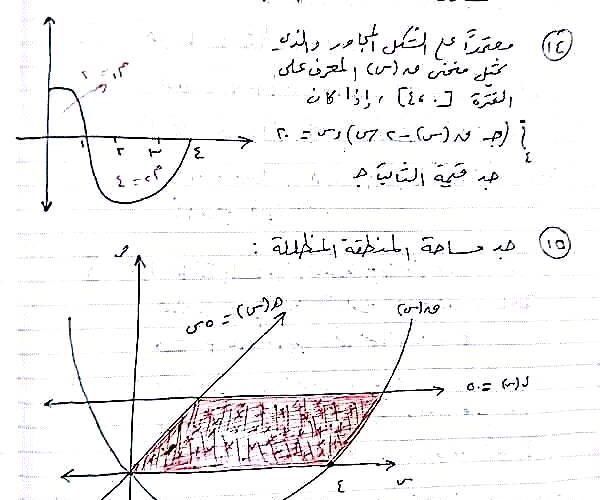 ١٤ معتمداً على الشكل المجاور والذي
يمثل منحنى ق(س) المعرف على
الفترة [٤،٠] ، إذا كان
(جـ ق(س) - ٢س) دس = ٢٠
جد قيمة الثابت جـ
م١ = ٢
١ ٢ ٣ ٤
م٢ = ٤
١٥ جد مساحة المنطقة المظللة :
ص
هـ(س) = ٥س
ق(س)
ل(س) = ٥
٤ س